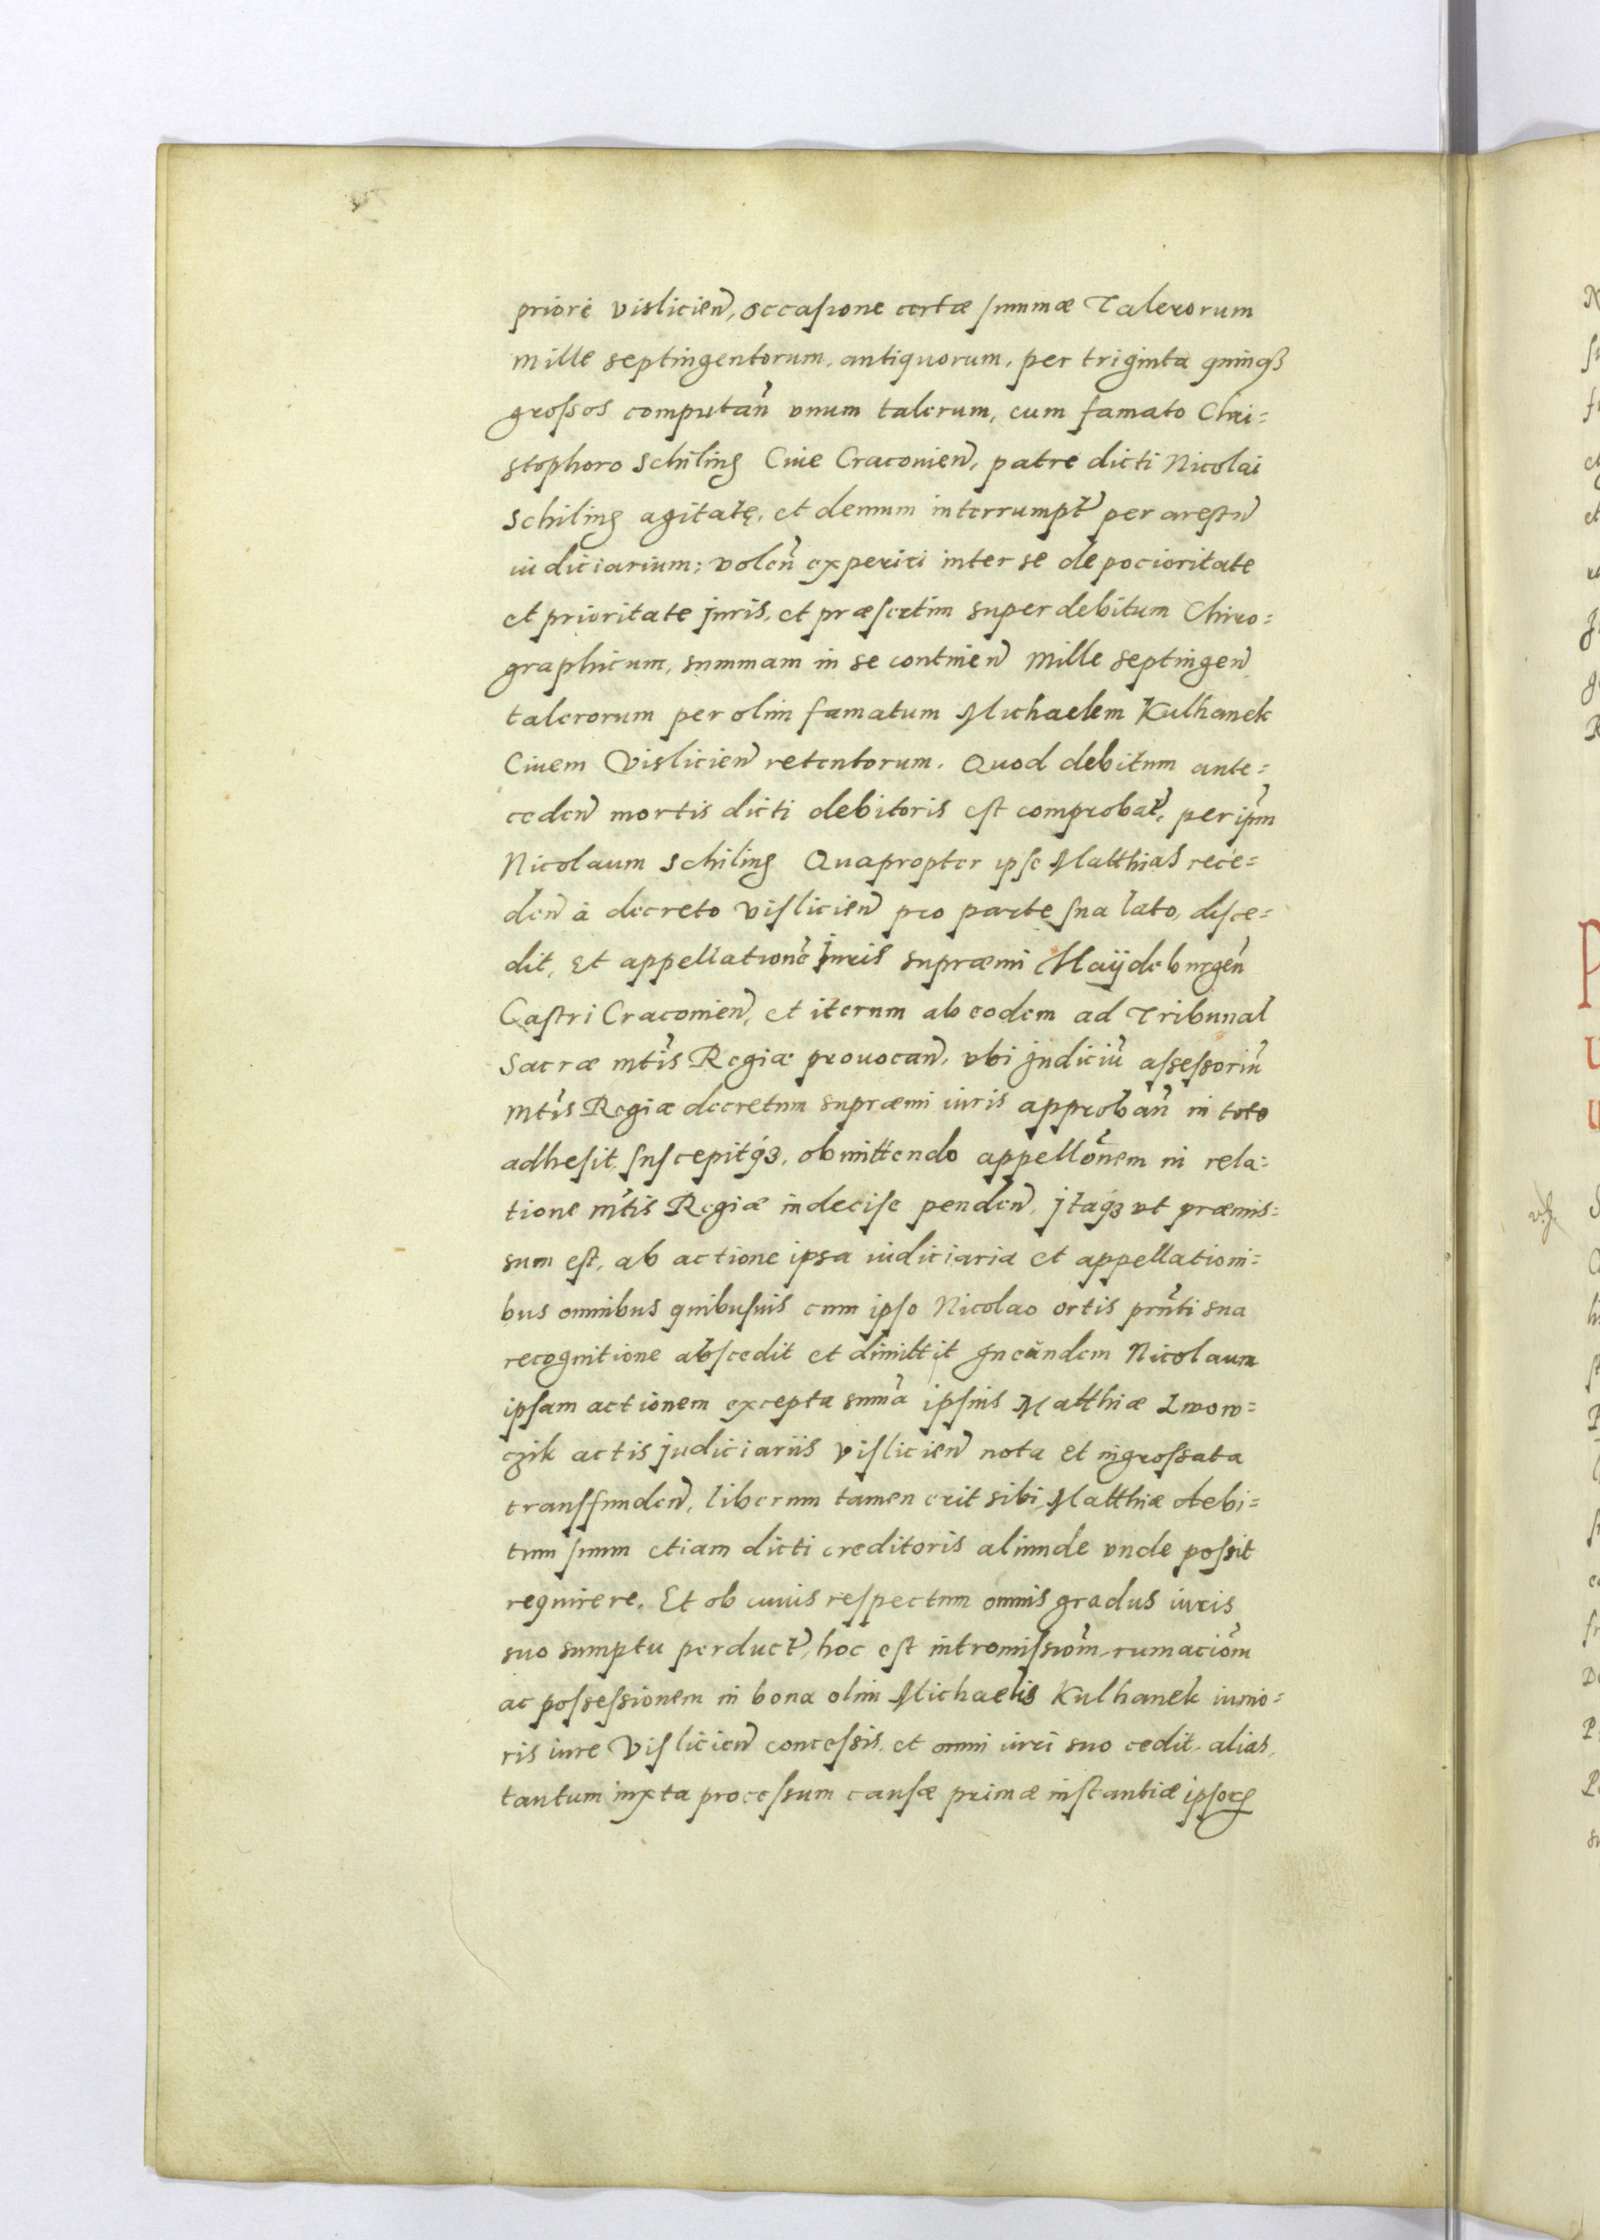 priorè vislicień, occasione certæ summæ Talerorum
mille septingentorum, antiquorum, per triginta quinqȝ
grossos computań vnum talerum, cum famato Chri=
stophoro Schiling Ciue Cracouień, patre dicti Nicolai
Schiling agitatę, et demum interrumpt̃ per arestũ
iudiciarium; voleñ experiri inter se de pocioritate
et prioritate juris, et præsertim super debitum Chiro=
graphicum, summam in se contineñ mille septingeñ
talerorum per olim famatum Michaelem Kulhanek
Ciuem Vislicieñ retentorum. Quod debitum ante=
cedeñ mortis dicti debitoris est comprobat̃, per ip̃m
Nicolaum Schiling Quapropter ipse Matthias rece=
deñ à decreto Vislicieñ pro parte sua lato, disce=
dit, Et appellationẽ juris supræmi Maÿdeburgeñ
Castri Cracouieñ, et iterum ab eodem ad Tribunal
Sacræ mt̃is Regiæ prouocañ, vbi judiciũ assessoriũ
mt̃is Regiæ decretum supræmi iuris approbañ in toto
adhesit, suscepitqȝ, obmittendo appellõnem in rela=
tione mt̃is Regiæ indecise pendeñ, jtaqȝ vt præmis=
sum est, ab actione ipsa iudiciaria et appellationi=
bus omnibus quibusuis cum ipso Nicolao ortis prñti sua
recognitione abscedit et dimittit In eundem Nicolaum
ipsam actionem excepta sum̃a ipsius Matthiæ Lwow=
czik actis judiciariis Vislicieñ nota et ingrossata
transfundeñ, liberum tamen erit sibi Matthiæ debi=
tum suum etiam dicti creditoris aliunde vnde possit
requirere. Et ob cuius respectum omnis gradus iuris
suo sumptu perduct̃, hoc est intromissiõm, rumaciõm
ac possessionem in bona olim Michaelis Kulhanek iunio=
ris iure Vislicieñ concessis, et omni iuri suo cedit, alias,
tantum iuxta processum causæ primæ instantiæ ipsoꝝ